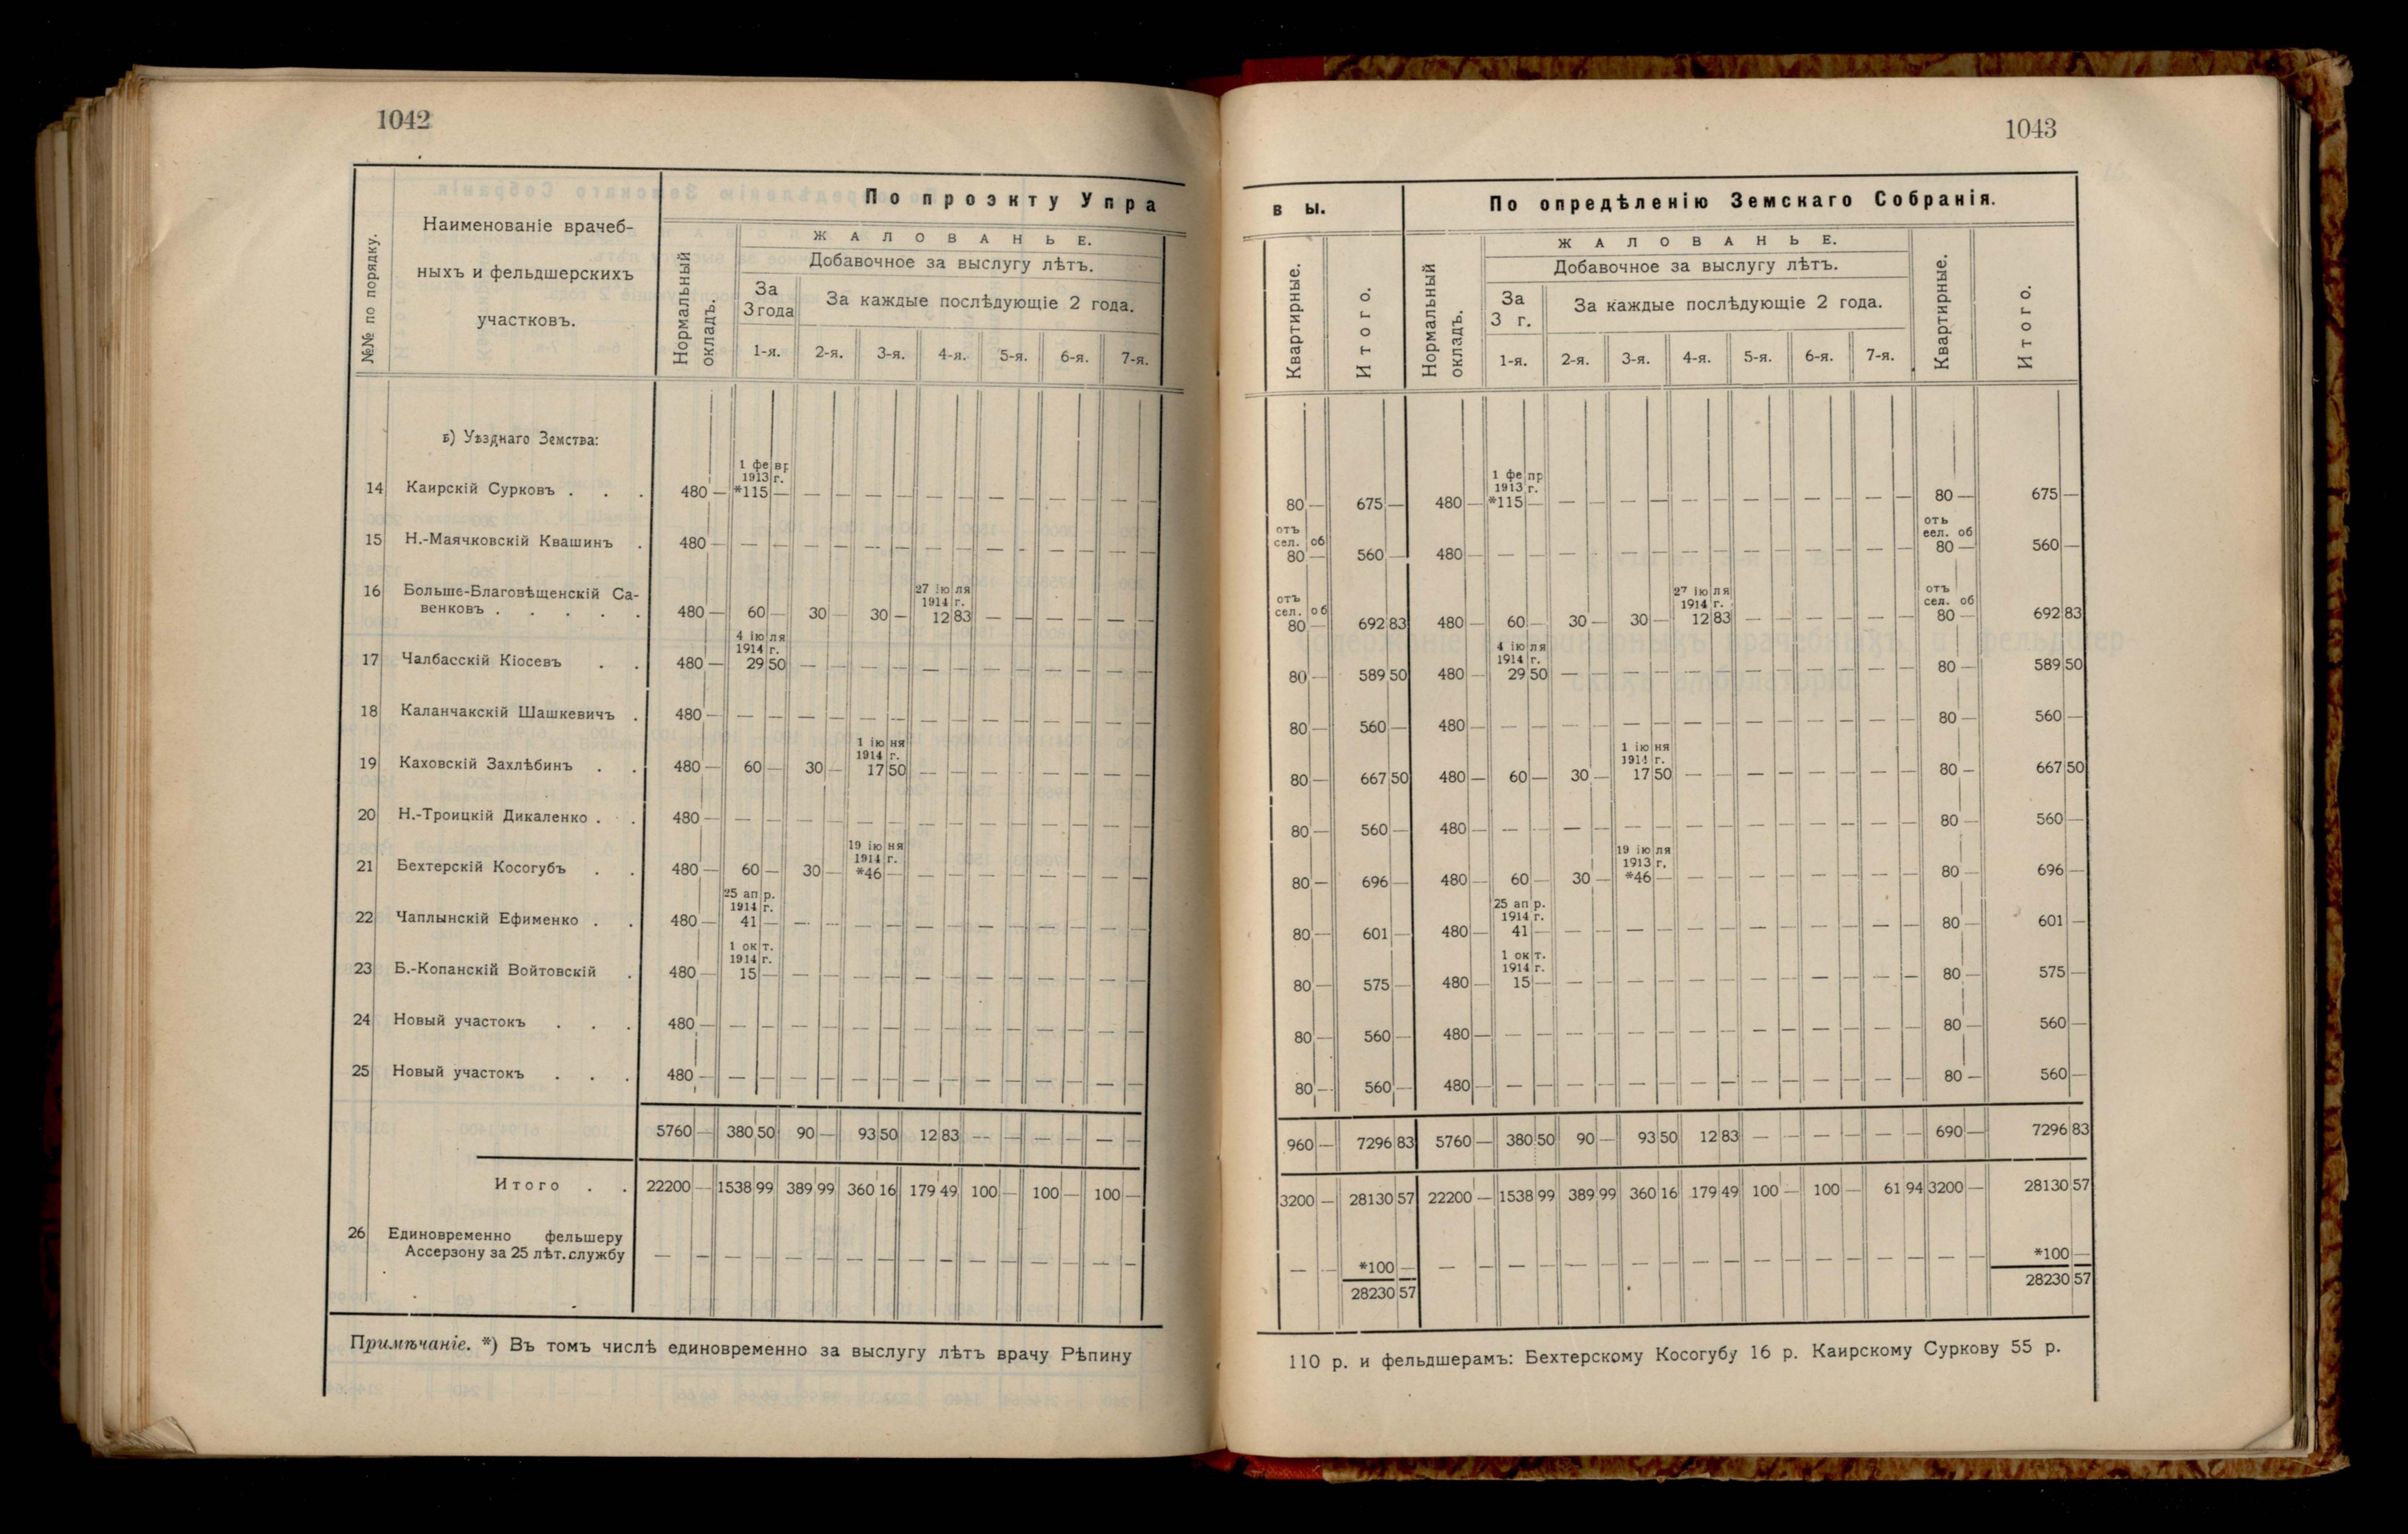 1042
№№ по порядку.
Наименованіе врачеб-
ныхъ и фельдшерскихъ
участковъ.
По проэкту Упра
Нормальный окладъ.
ЖАЛОВАНЬЕ.
Добавочное за выслугу лѣтъ.
За 3 года
За каждые послѣдующіе 2 года.
1-я. 2-я. 3-я. 4-я. 5-я. 6-я. 7-я.
в) Уѣзднаго Земства:
1 февр 1913 г.
14 Каирскій Сурковъ . . . 480 — *115 — — — — — — — — — — — — —
15 Н.-Маячковскій Квашинъ . 480 — — — — — — — — — — — — — — —
27 іюля 1914 г.
16 Больше-Благовѣщенскій Са-
венковъ . . . . . 480 — 60 — 30 — 30 — 12 83 — — — — — —
4 іюля 1914 г.
17 Чалбасскій Кіосевъ . . 480 — 29 50 — — — — — — — — — — — —
18 Каланчакскій Шашкевичъ . 480 — — — — — — — — — — — — — — —
1 іюня 1914 г.
19 Каховскій Захлѣбинъ . . 480 — 60 — 30 — 17 50 — — — — — — — —
20 Н.-Троицкій Дикаленко . . 480 — — — — — — — — — — — — — — —
19 іюня 1914 г.
21 Бехтерскій Косогубъ . . 480 — 60 — 30 — *46 — — — — — — — — —
25 апр. 1914 г.
22 Чаплынскій Ефименко . . 480 — 41 — — — — — — — — — — — — —
1 окт. 1914 г.
23 Б.-Копанскій Войтовскій . 480 — 15 — — — — — — — — — — — — —
24 Новый участокъ . . . 480 — — — — — — — — — — — — — — —
25 Новый участокъ . . . 480 — — — — — — — — — — — — — — —
5760 — 380 50 90 — 93 50 12 83 — — — — — —
Итого . . 22200 — 1538 99 389 99 360 16 179 49 100 — 100 — 100 —
26 Единовременно фельшеру
Ассерзону за 25 лѣт. службу — — — — — — — — — — — — — — — —
Примѣчаніе. *) Въ томъ числѣ единовременно за выслугу лѣтъ врачу Рѣпину
1043
вы.
По опредѣленію Земскаго Собранія.
Квартирные.
Итого.
Нормальный окладъ.
ЖАЛОВАНЬЕ.
Добавочное за выслугу лѣтъ.
За 3 г.
За каждые послѣдующіе 2 года.
1-я. 2-я. 3-я. 4-я. 5-я. 6-я. 7-я.
Квартирные.
Итого.
1 фепр 1913 г.
80 — 675 — 480 — *115 — — — — — — — — — — — — — 80 — 675 —
отъ сел. об отъ еел. об
80 — 560 — 480 — — — — — — — — — — — — — — — 80 — 560 —
отъ сел. об 27 іюля 1914 г. отъ сел. об
80 — 692 83 480 — 60 — 30 — 30 — 12 83 — — — — — — 80 — 692 83
4 іюля 1914 г.
80 — 589 50 480 — 29 50 — — — — — — — — — — — — 80 — 589 50
80 — 560 — 480 — — — — — — — — — — — — — — — 80 — 560 —
1 іюня 1914 г.
80 — 667 50 480 — 60 — 30 — 17 50 — — — — — — — — 80 — 667 50
80 — 560 — 480 — — — — — — — — — — — — — — — 80 — 560 —
19 іюля 1913 г.
80 — 696 — 480 — 60 — 30 — *46 — — — — — — — — — 80 — 696 —
25 апр. 1914 г.
80 — 601 — 480 — 41 — — — — — — — — — — — — — 80 — 601 —
1 окт. 1914 г.
80 — 575 — 480 — 15 — — — — — — — — — — — — — 80 — 575 —
80 — 560 — 480 — — — — — — — — — — — — — — — 80 — 560 —
80 — 560 — 480 — — — — — — — — — — — — — — — 80 — 560 —
960 — 7296 83 5760 — 380 50 90 — 93 50 12 83 — — — — — — 690 — 7296 83
3200 — 28130 57 22200 — 1538 99 389 99 360 16 179 49 100 — 100 — 61 94 3200 — 28130 57
— — *100 — — — — — — — — — — — — — — — — — — — *100 —
28230 57 28230 57
110 р. и фельдшерамъ: Бехтерскому Косогубу 16 р. Каирскому Суркову 55 р.